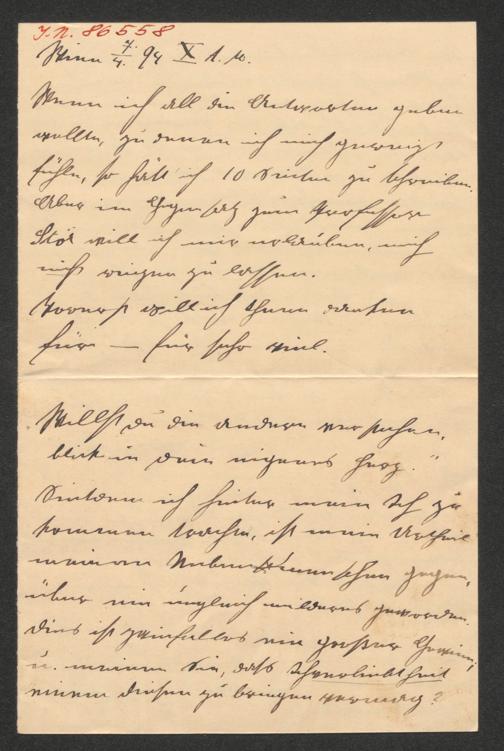 J.N. 86558
Wien 7./4. 94 X 1. W.
Wenn ich all die Antworten geben
wollte, zu denen ich mich geneigt
fühle, so hätt' ich 10 Seiten zu schreiben.
Aber im Gegensatz zum Professor
Stör will ich mir erlauben, mich
nicht zu lassen.
Zuerst will ich Ihnen danken
für — für sehr viel.
Willst du die andern verstehen,
blick in dein eigenes Herz."
Seitdem ich hinter mein Ich zu
kommen trachte, ist mein Urtheil
meinen Nebenmenschen gegen-
über ein ungleich milderes geworden.
Dies ist zweifellos ein großer Gewinn,
u. meinen Sie, daß Schverliebtheit
einem diesen zu bringen vermag?